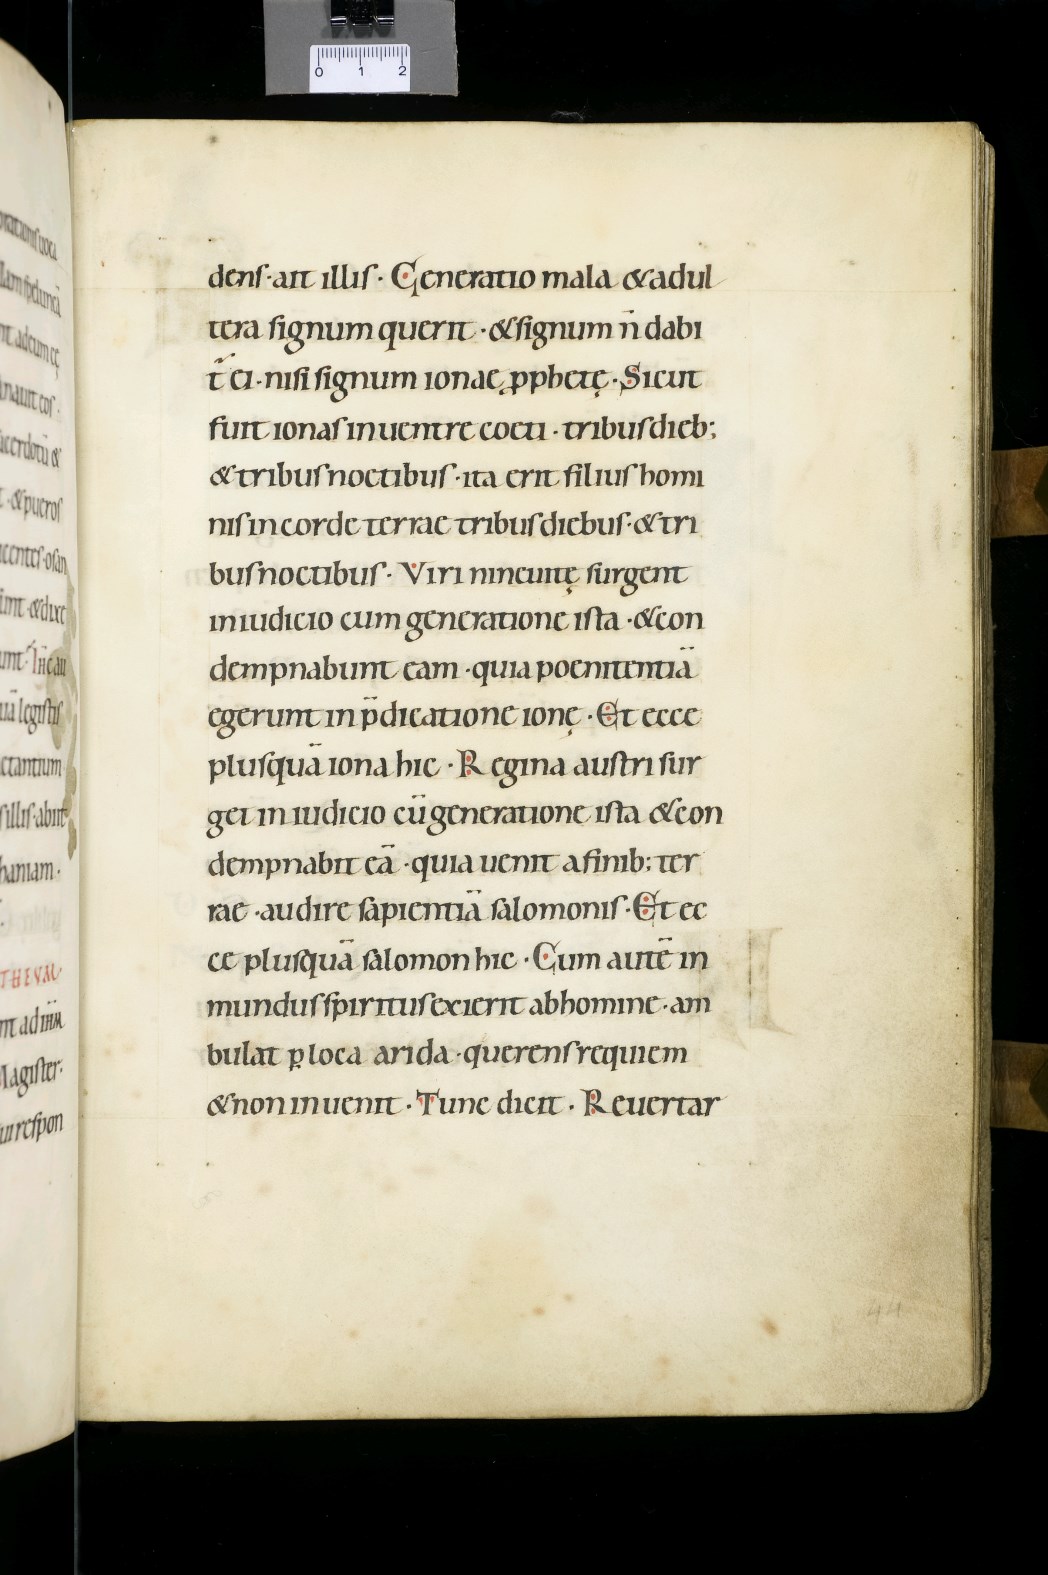 0 1 2
denſ·ait illiſ· Generatio mala &adul
tera ſignum querit ·&ſignum n̄ dabi
t̄ ei·niſi ſignum ionae ꝓphetę·Sicut
fuit ionaſ in uentre coeti ·tribuſ dieb;
&tribuſ noctibuſ ·ita erit filiuſ homi
niſ in corde terrae tribuſ diebuſ·&tri
buſ noctibuſ· Viri nineuitę ſurgent
in iudicio cum generatione iſta ·&con
dempnabunt eam ·quia poenitentiā
egerunt in p̄dicatione ionę ·Et ecce
pluſquā iona hic ·Regina auſtri ſur
get in iudicio cū generatione iſta &con
dempnabit eā ·quia uenit a finib; ter
rae ·audire ſapientiā ſalomoniſ·Et ec
ce pluſquā ſalomon hic ·Cum autē in
munduſ ſpirituſ exierit ab homine·am
bulat ꝑ loca arida ·querenſ requiem
&non inuenit ·Tunc dicit ·Reuertar
44
lam ſpeluncā
nt ad eum cę
anauit eoſ·
acerdotū &
t·&pueroſ
centeſ·oſan
unt·&dixe
unt·Ih̄c au
uā legiſtiſ
ctantium
ſ illiſ·abiit
haniam·
THEUM·
nt ad ih̄m
Magiſter·
ui reſpon